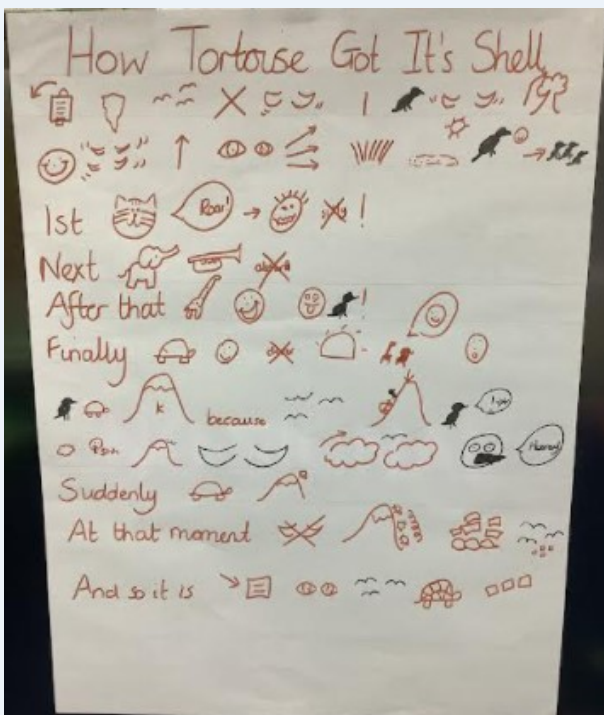 How Tortoise Got It's Shell
1st Roar! !
Next
After that !
Finally
K because
Suddenly
At that moment
And so it is